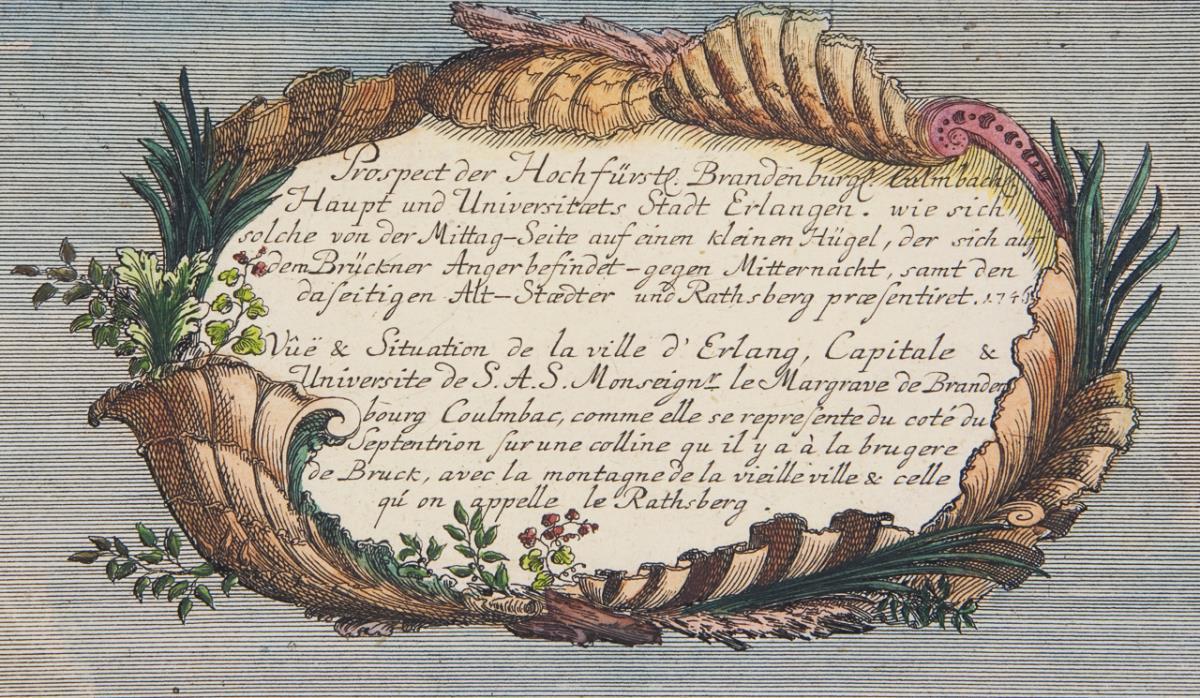 Prospect der Hochfürstl. Brandenburgl. Culmbachl.
Haupt und Universitæts Stadt Erlangen. wie sich
solche von der Mittag-Seite auf einen kleinen Hügel, der sich auf
dem Brückner Anger befindet - gegen Mitternacht, samt den
daseitigen Alt-Stædter und Rathsberg præsentiret.
Vûë & Situation de la ville d'Erlang, Capitale &
Universite de S. A. S. Monseignr. le Margrave de Branden
bourg Coulmbac, comme elle se repreſente du coté du
Septentrion ſur une colline qu il y a à la brugere
de Bruck, avec la montagne de la vieille ville & celle
qú on appelle le Rathsberg.